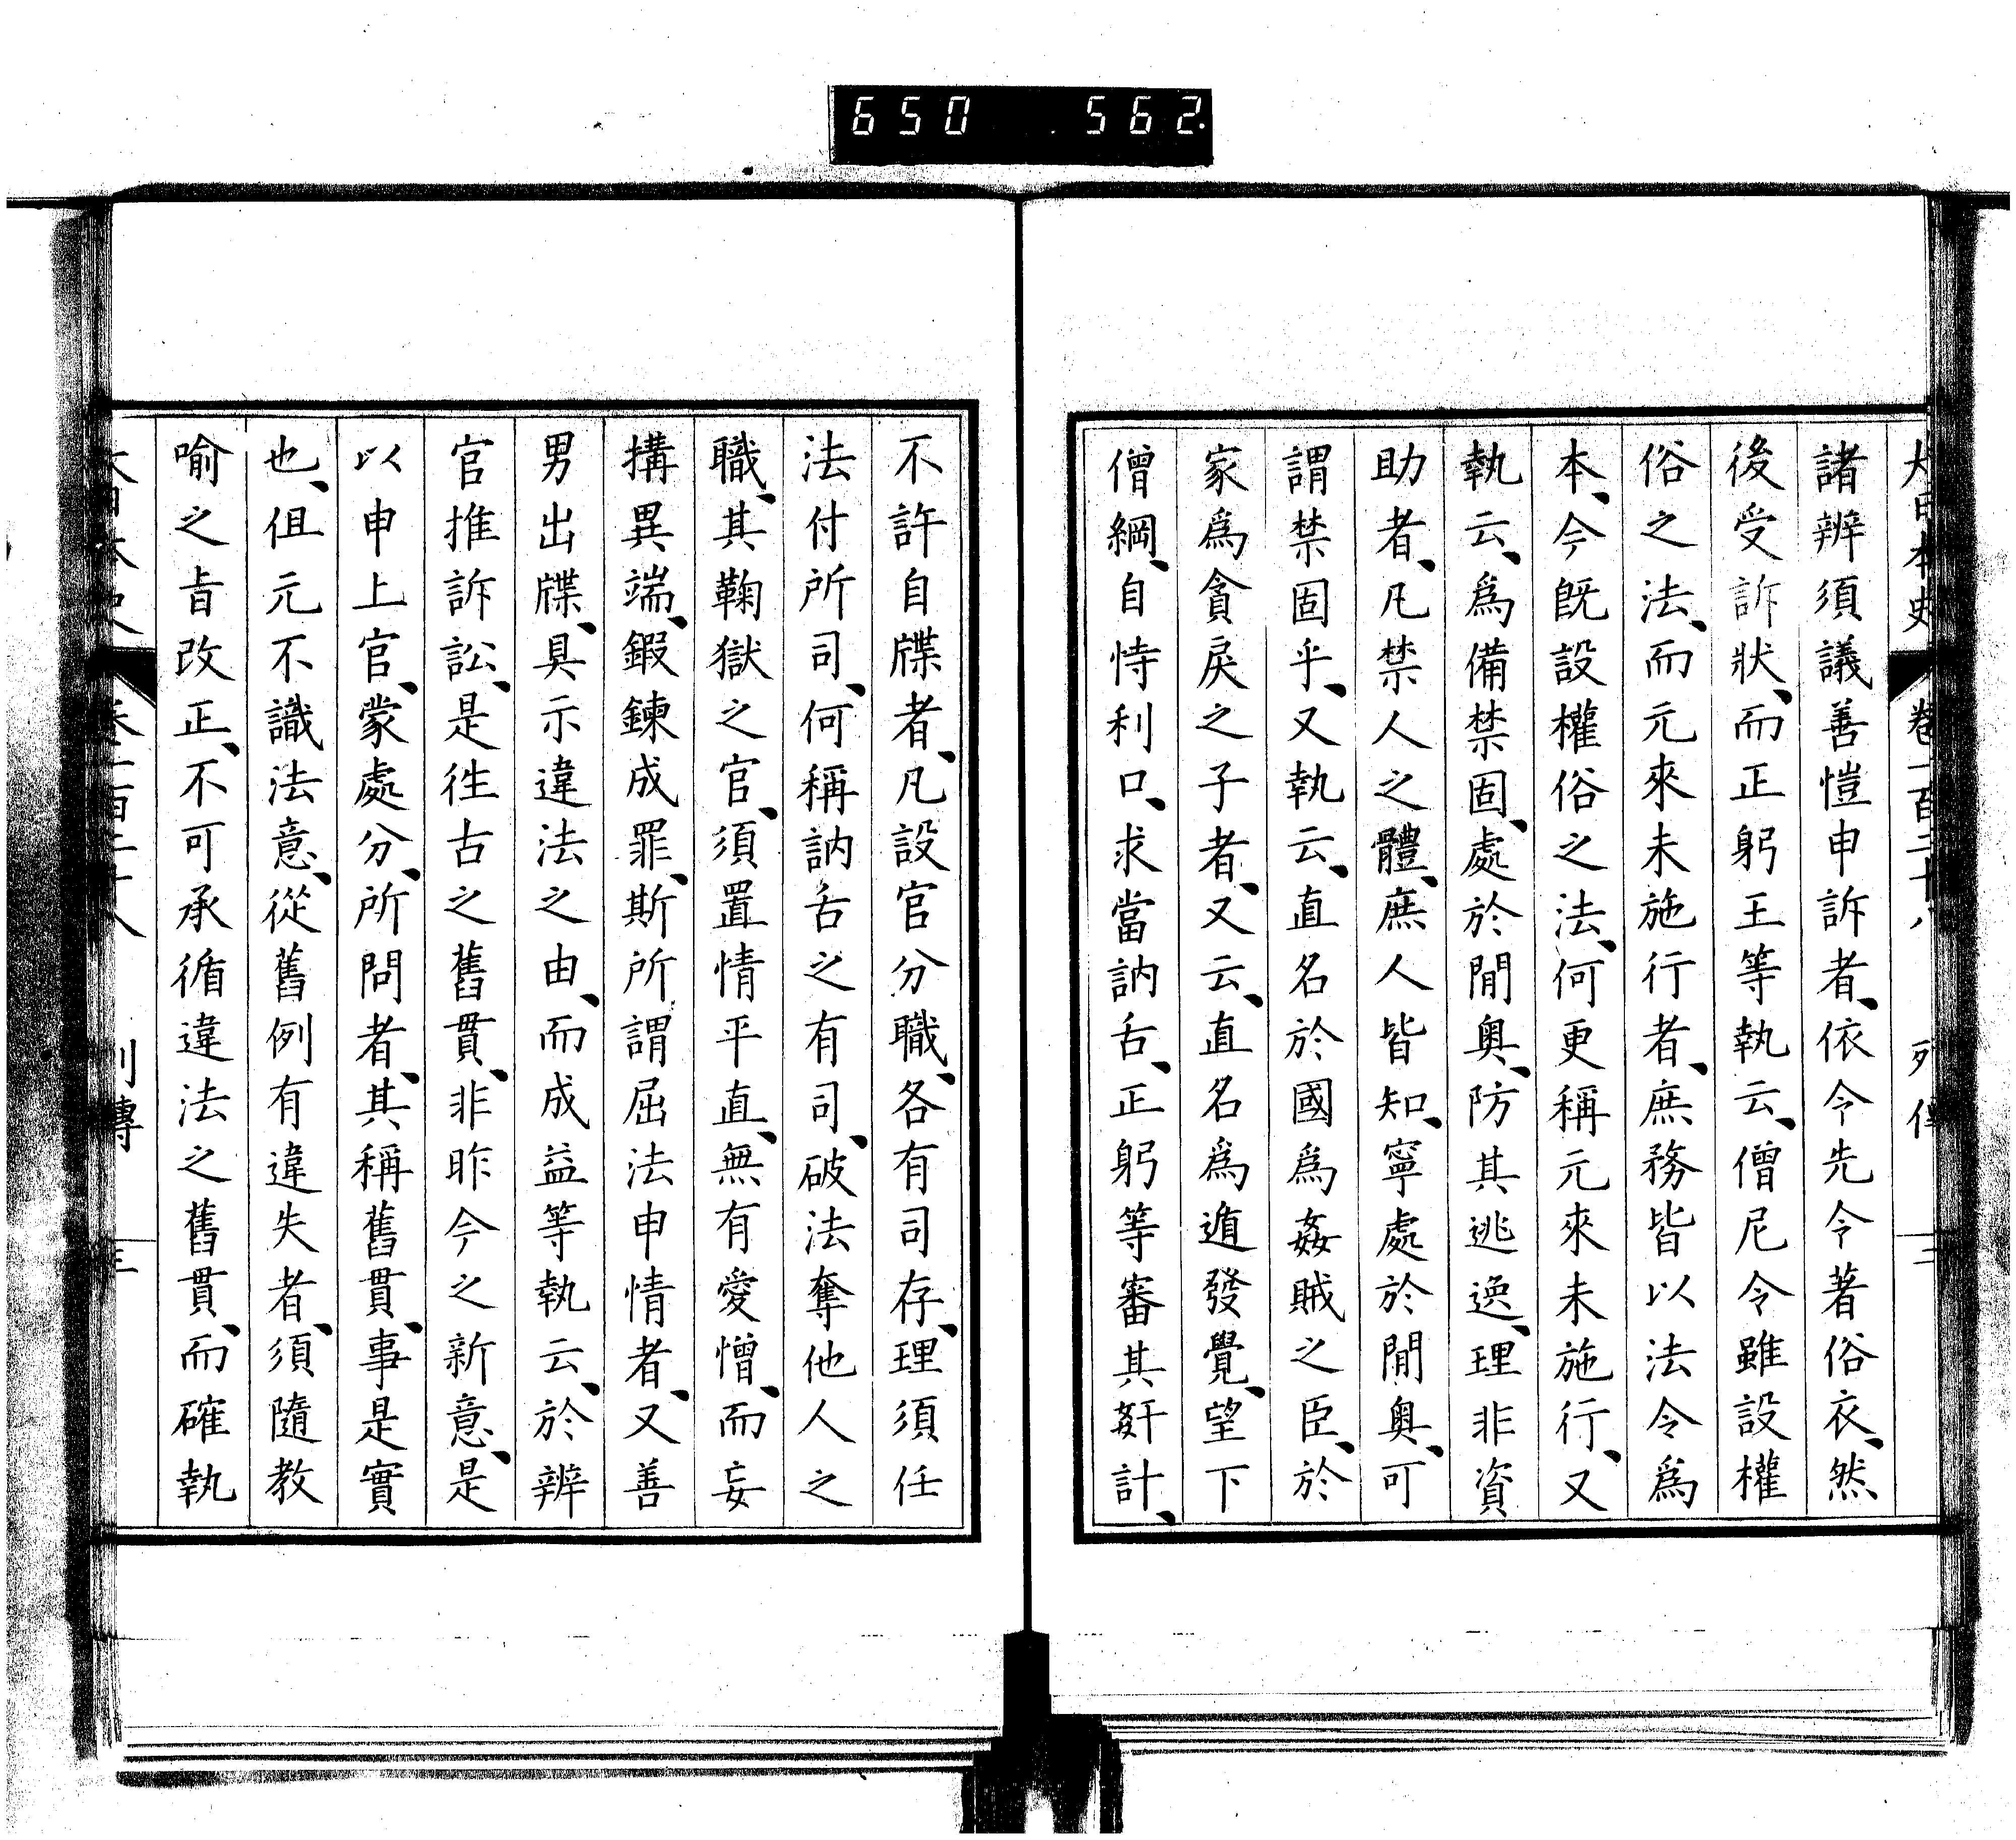 650 562
大日本史 卷一百二十八 列傳 三
諸辨須議善愷申訴者、依令先令著俗衣、然
後受訴狀、而正躬王等執云、僧尼令雖設權
俗之法、而元來未施行者、庶務皆以法令爲
本、今既設權俗之法、何更稱元來未施行、又
執云、爲備禁固、處於閒奧、防其逃逸、理非資
助者、凡禁人之體、庶人皆知、寧處於閒奧、可
謂禁固乎、又執云、直名於國爲姦賊之臣、於
家爲貪戾之子者、又云、直名爲遁發覺、望下
僧綱、自恃利口、求當訥舌、正躬等審其姧計、
不許自牒者、凡設官分職、各有司存、理須任
法付所司、何稱訥舌之有司、破法奪他人之
職、其鞠獄之官、須置情平直、無有愛憎、而妄
搆異端、鍜鍊成罪、斯所謂屈法申情者、又善
男出牒、具示違法之由、而成益等執云、於辨
官推訴訟、是徃古之舊貫、非昨今之新意、是
以申上官、蒙處分、所問者、其稱舊貫、事是實
也、伹元不識法意、從舊例有違失者、須隨教
喻之旨改正、不可承循違法之舊貫、而確執
大日本史 卷一百二十八 列傳 三